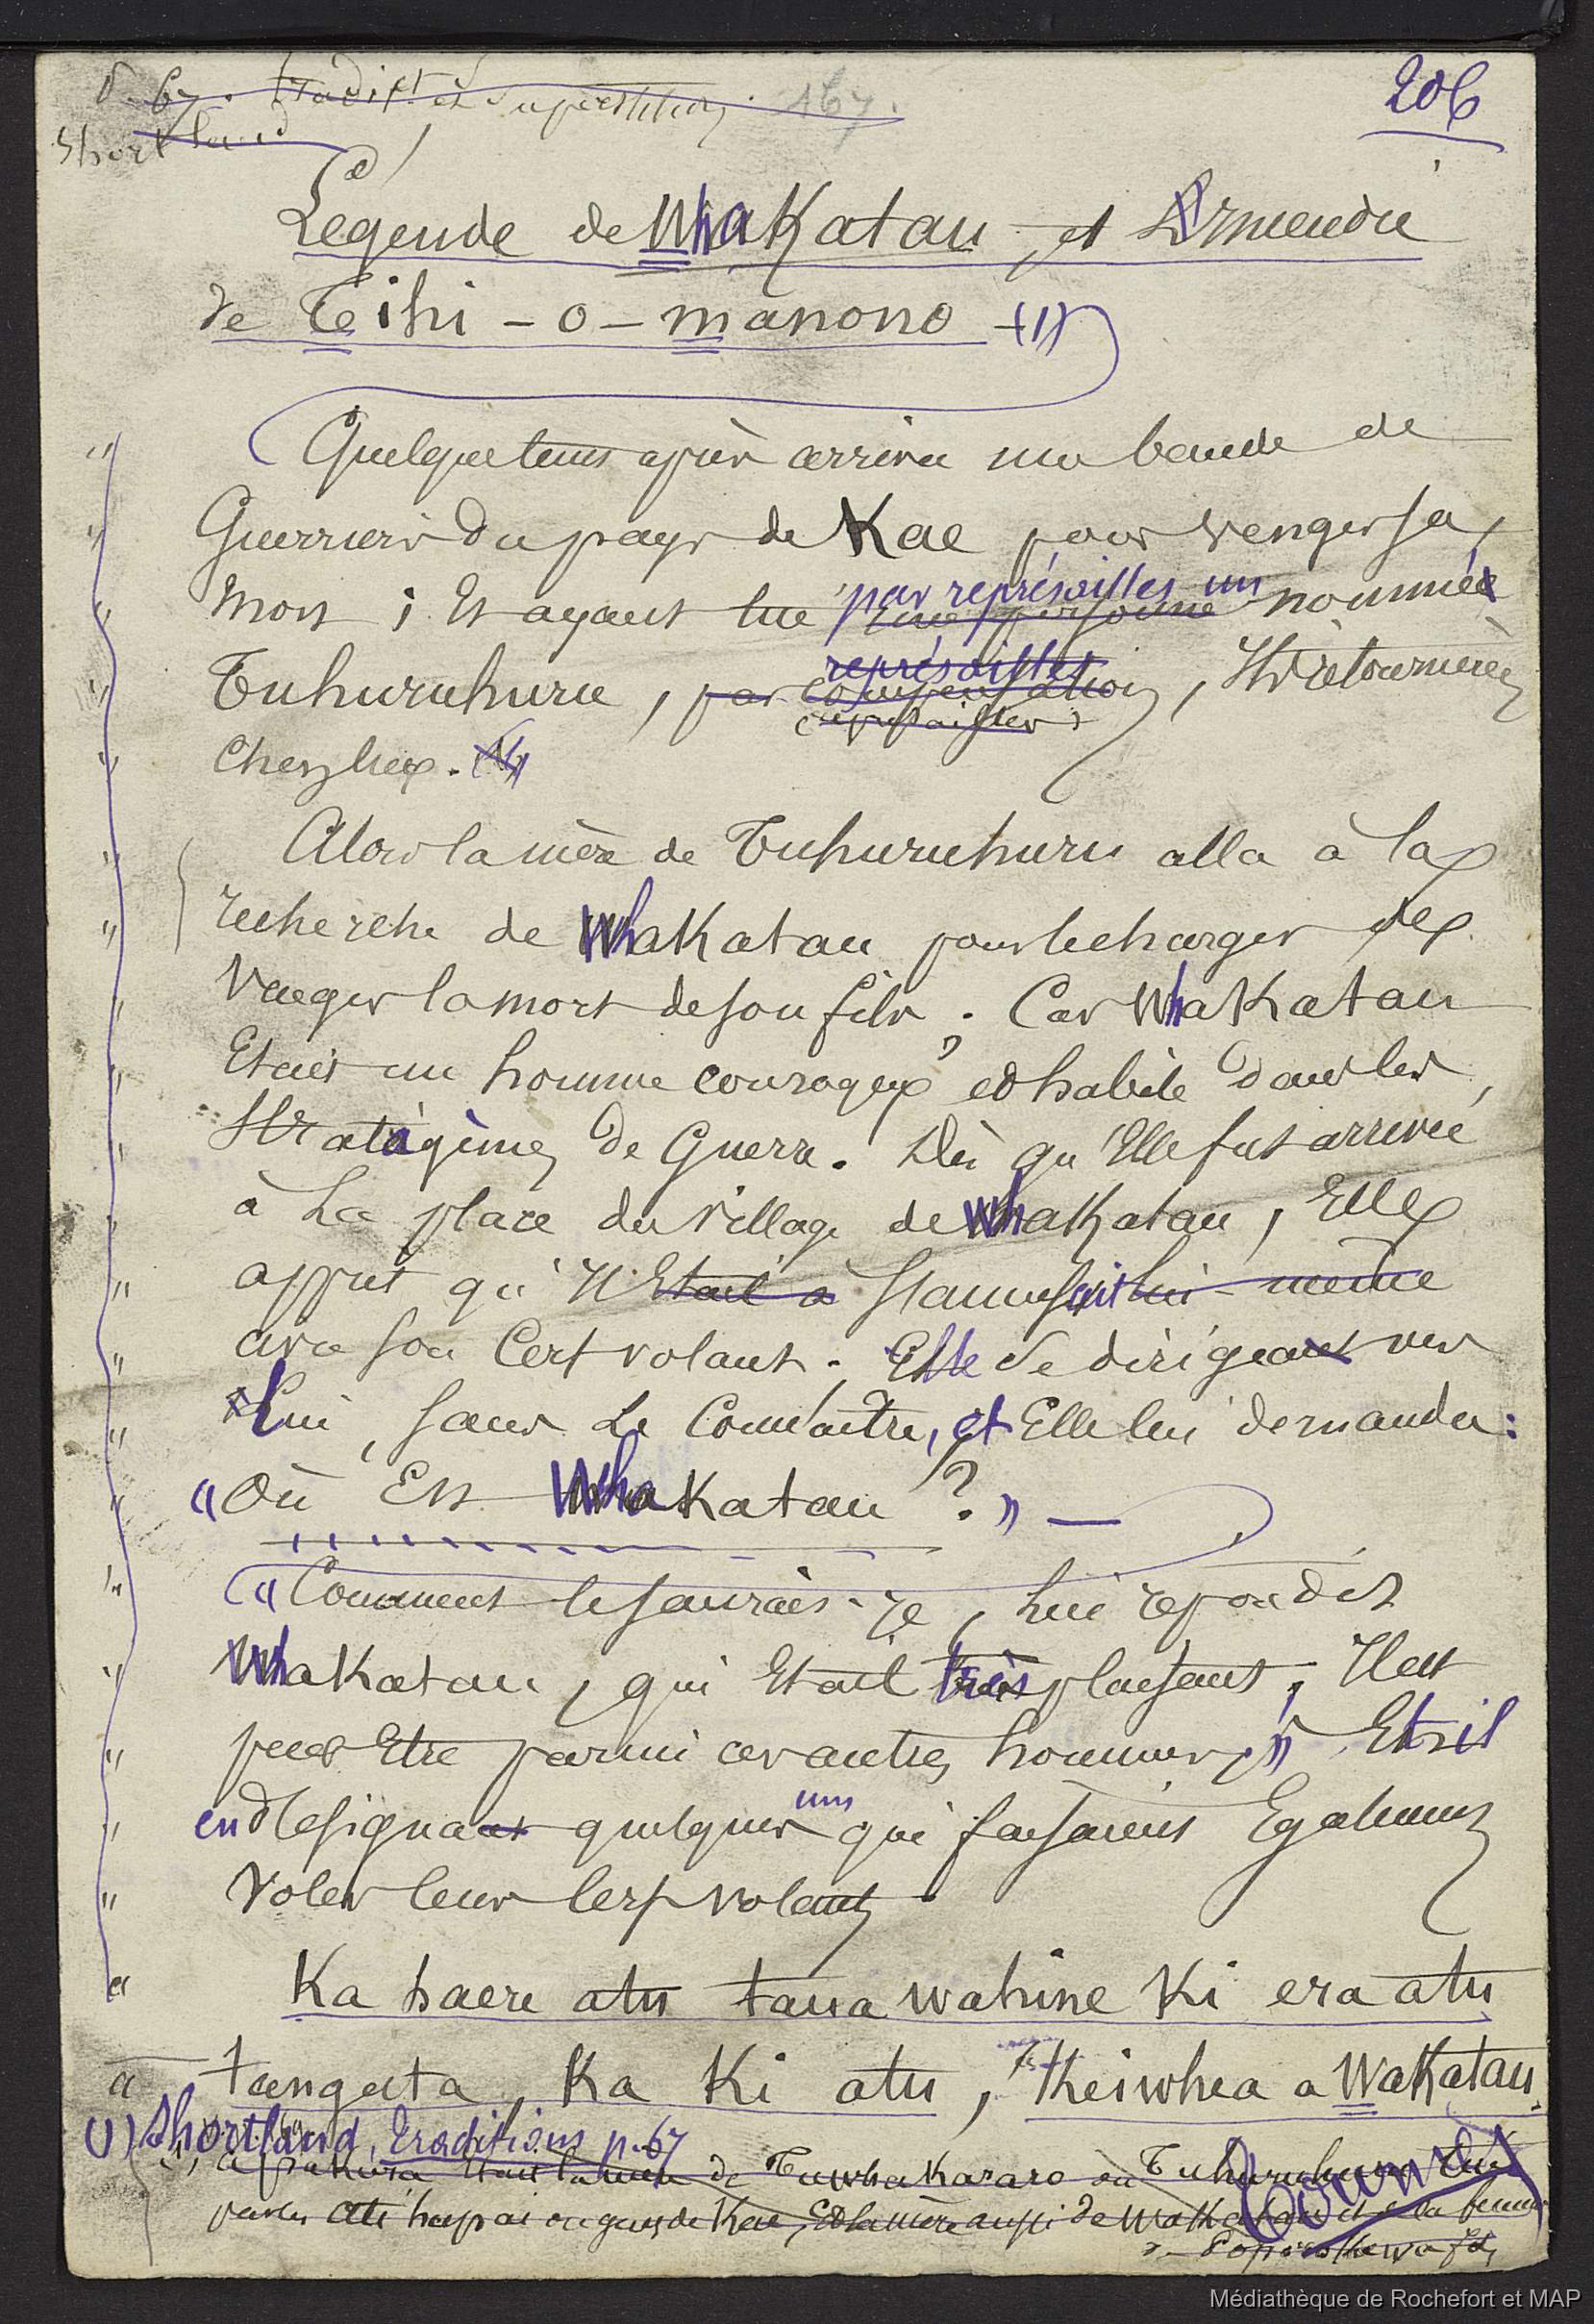 p. 67. Tradit. et Superstition 167.
206
Shortland
Légende de Whakatau et Incendie
de Te ihi - o - manono (1)
Quelque tems après arriva une bande de
Guerriers du pays de Kae pour venger sa
Mort ; Et ayant tué par représailles un nommé
une personne
représailles
Tuhuruhuru, par compensation, Ils retournèrent
(représailles)
chez eux. (1)
Alors la mère de Tuhuruhuru alla à la
recherche de Whakatau pour le charger de
Venger la mort de son fils ; Car Whakatau
Etait un homme courageux et habile dans les
Stratagèmes de Guerre. Dès qu'Elle fut arrivée
à la place du village de Whakatau, Elle
apprit qu'Il Etait à s'amusait lui-même
avec son Cerf volant. Elle se dirigea vers
Lui, sans le Connaître, et Elle lui demanda :
« Où Est Whakatau ? » —
« Comment le saurais-je, lui répondit
Whakatau, qui Etait très plaisant ; Il est
peut Etre parmi ces autres hommes, » Et il
en désigna quelques uns qui faisaient Egalement
Voler leur Cerf volant.
Ka haere atu taua wahine Ki era atu
tangata, Ka Ki atu, "Keiwhea a Wakatau.
(1) Shortland, Traditions p. 67
Apakura Etait la mère de Tuwhakararo ou Tuhuruhuru tué
par les Ati hapai ou gens de Kae, Et la mère aussi de Wakatau et de la femme
Tournez